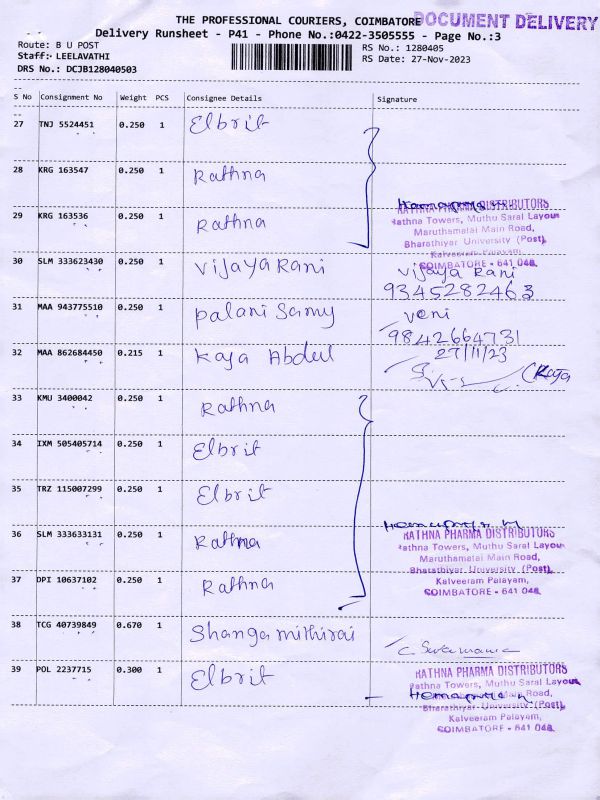 THE PROFESSIONAL COURIERS, COIMBATORE DOCUMENT DELIVERY
Delivery Runsheet - P41 - Phone No.:0422-3505555 - Page No.:3
Route: B U POST RS No.: 1280405
Staff: LEELAVATHI RS Date: 27-Nov-2023
DRS No.: DCJB128040503
S No Consignment No Weight PCS Consignee Details Signature
27 TNJ 5524451 0.250 1 Elbrit
28 KRG 163547 0.250 1 Rathna
RATHNA PHARMA DISTRIBUTORS
29 KRG 163536 0.250 1 Rathna
Rathna Towers, Muthu Saral Layout
Maruthamalai Main Road,
Bharathiyar University (Post),
Kalveeram Palayam,
COIMBATORE - 641 046.
30 SLM 333623430 0.250 1 Vijaya Rani Vijaya Rani
9345282463
31 MAA 943775510 0.250 1 Palani Samy Veni
9842664731
32 MAA 862684450 0.215 1 Kaja Abdul 27/11/23
(Kaja
33 KMU 3400042 0.250 1 Rathna
34 IXM 505405714 0.250 1 Elbrit
35 TRZ 115007299 0.250 1 Elbrit
36 SLM 333633131 0.250 1 Rathna
RATHNA PHARMA DISTRIBUTORS
Rathna Towers, Muthu Saral Layout
Maruthamalai Main Road,
Bharathiyar University (Post),
37 DPI 10637102 0.250 1 Rathna
Kalveeram Palayam,
COIMBATORE - 641 046.
38 TCG 40739849 0.670 1 Shangamithirai
39 POL 2237715 0.300 1 Elbrit
RATHNA PHARMA DISTRIBUTORS
Rathna Towers, Muthu Saral Layout
Main Road,
Bharathiyar University (Post),
Kalveeram Palayam,
COIMBATORE - 641 046.